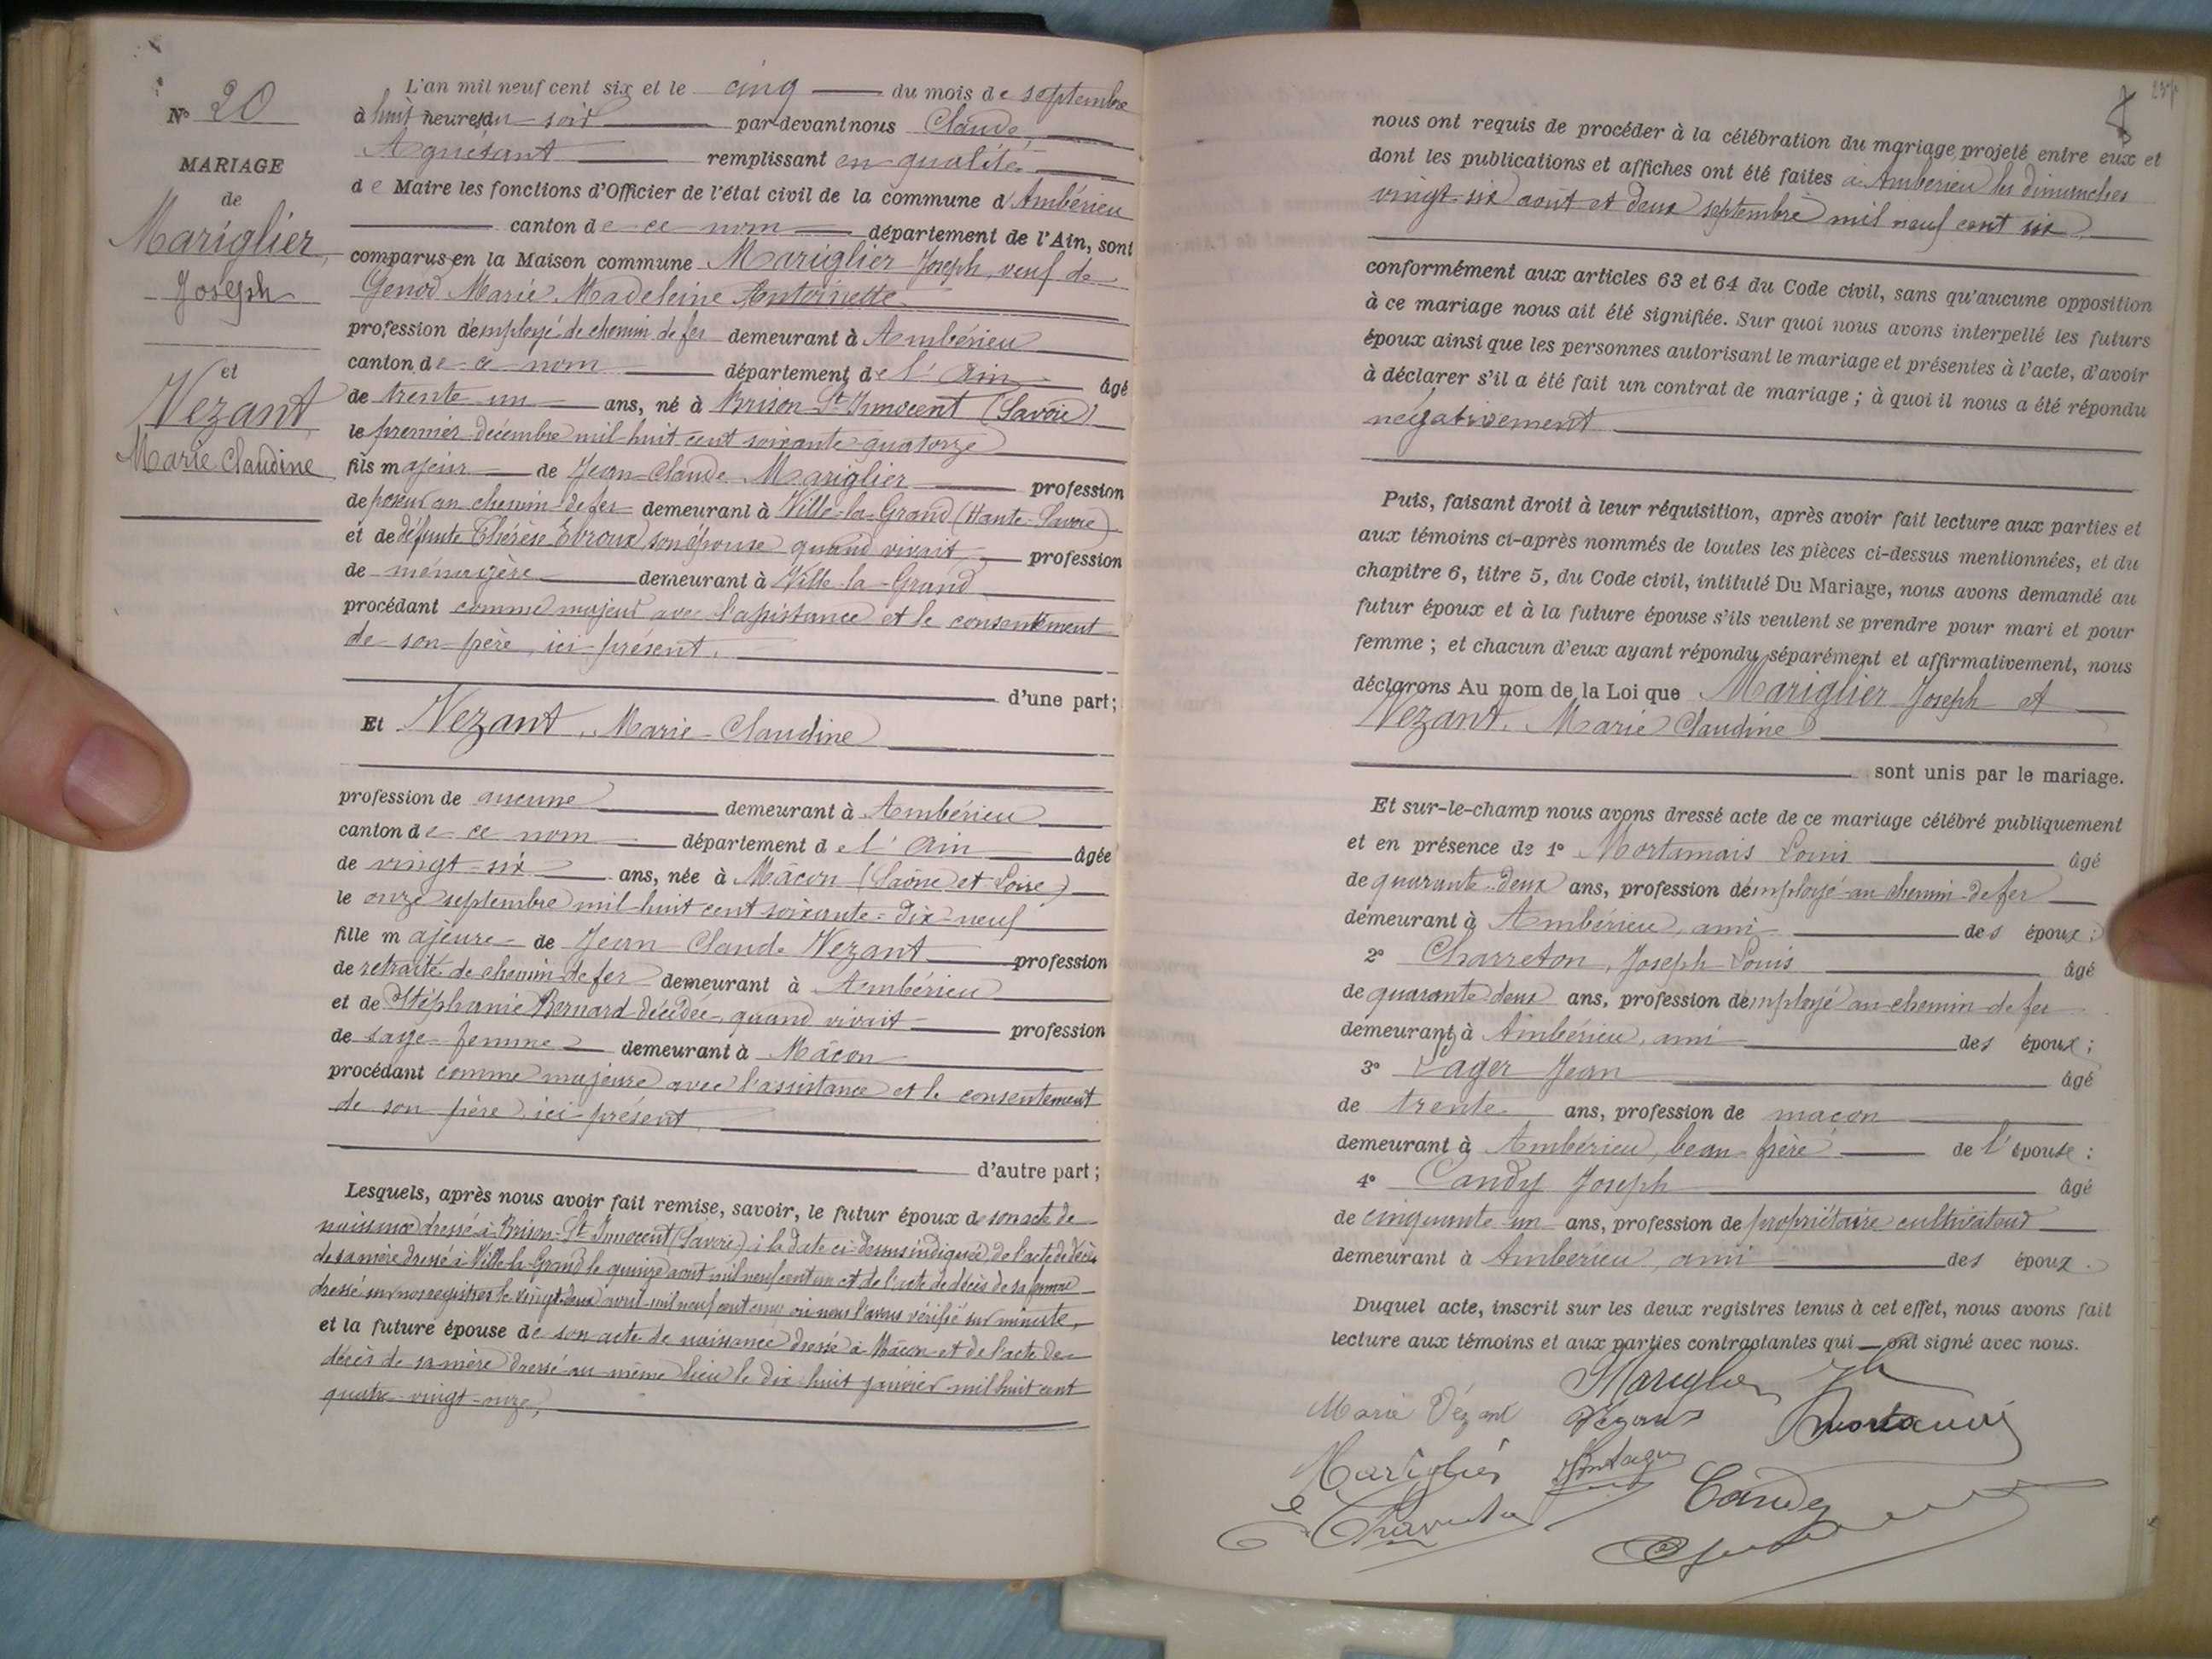 N° 20
MARIAGE
de
Mariglier
Joseph
et
Vezant
Marie Claudine
L'an mil neuf cent six et le cinq du mois de septembre
à huit heures du soir par-devant nous Claude
Aguétant remplissant en qualité
de Maire les fonctions d'Officier de l'état civil de la commune d'Ambérieu
canton de ce nom département de l'Ain, sont
comparus en la Maison commune Mariglier Joseph, veuf de
Genod Marie Madeleine Antoinette
profession d'employé de chemin de fer demeurant à Ambérieu
canton de ce nom département de l'Ain âgé
de trente un ans, né à Brison St Innocent (Savoie)
le premier décembre mil huit cent soixante quatorze
fils majeur de Jean Claude Mariglier profession
de poseur au chemin de fer demeurant à Ville-la-Grand (Haute Savoie)
et de défunte Thérèse Ebroux, son épouse quand vivait profession
de ménagère demeurant à Ville-la-Grand
procédant comme majeur avec l'assistance et le consentement
de son père, ici présent.
d'une part;
Et Vezant, Marie Claudine
profession de aucune demeurant à Ambérieu
canton de ce nom département de l'Ain âgée
de vingt-six ans, née à Mâcon (Saône et Loire)
le onze septembre mil huit cent soixante-dix-neuf
fille majeure de Jean Claude Vezant profession
de retraité de chemin de fer demeurant à Ambérieu
et de Stéphanie Bernard décédée, quand vivait profession
de sage-femme demeurant à Mâcon
procédant comme majeure avec l'assistance et le consentement
de son père, ici présent
d'autre part;
Lesquels, après nous avoir fait remise, savoir, le futur époux de son acte de
naissance dressé à Brison-St Innocent (Savoie) à la date ci-dessus indiquée, de l'acte de décès
de sa mère dressé à Ville-la-Grand le quinze août mil neuf cent un et de l'acte de décès de sa femme
dressé sur nos registres le vingt-deux avril mil neuf cent cinq où nous l'avons vérifié sur minute,
et la future épouse de son acte de naissance dressé à Mâcon et de l'acte de
décès de sa mère dressé au même lieu le dix-huit janvier mil huit cent
quatre-vingt-onze,
nous ont requis de procéder à la célébration du mariage projeté entre eux et
dont les publications et affiches ont été faites à Ambérieu les dimanches
vingt-six août et deux septembre mil neuf cent six
conformément aux articles 63 et 64 du Code civil, sans qu'aucune opposition
à ce mariage nous ait été signifiée. Sur quoi nous avons interpellé les futurs
époux ainsi que les personnes autorisant le mariage et présentes à l'acte, d'avoir
à déclarer s'il a été fait un contrat de mariage; à quoi il nous a été répondu
négativement
Puis, faisant droit à leur réquisition, après avoir fait lecture aux parties et
aux témoins ci-après nommés de toutes les pièces ci-dessus mentionnées, et du
chapitre 6, titre 5, du Code civil, intitulé Du Mariage, nous avons demandé au
futur époux et à la future épouse s'ils veulent se prendre pour mari et pour
femme; et chacun d'eux ayant répondu séparément et affirmativement, nous
déclarons Au nom de la Loi que Mariglier Joseph et
Vezant, Marie Claudine
sont unis par le mariage.
Et sur-le-champ nous avons dressé acte de ce mariage célébré publiquement
et en présence de 1° Mortamais Louis âgé
de quarante-deux ans, profession d'employé au chemin de fer
demeurant à Ambérieu, ami des époux;
2° Charreton, Joseph Louis âgé
de quarante deux ans, profession d'employé au chemin de fer
demeurant à Ambérieu, ami des époux;
3° Sager Jean âgé
de trente ans, profession de maçon
demeurant à Ambérieu, beau-frère de l'épouse:
4° Candy Joseph âgé
de cinquante-un ans, profession de propriétaire cultivateur
demeurant à Ambérieu, ami des époux.
Duquel acte, inscrit sur les deux registres tenus à cet effet, nous avons fait
lecture aux témoins et aux parties contractantes qui ont signé avec nous.
Mariglier Jh
Marie Vézant Vézant Mortamais
Mariglier
Candy
Charreton